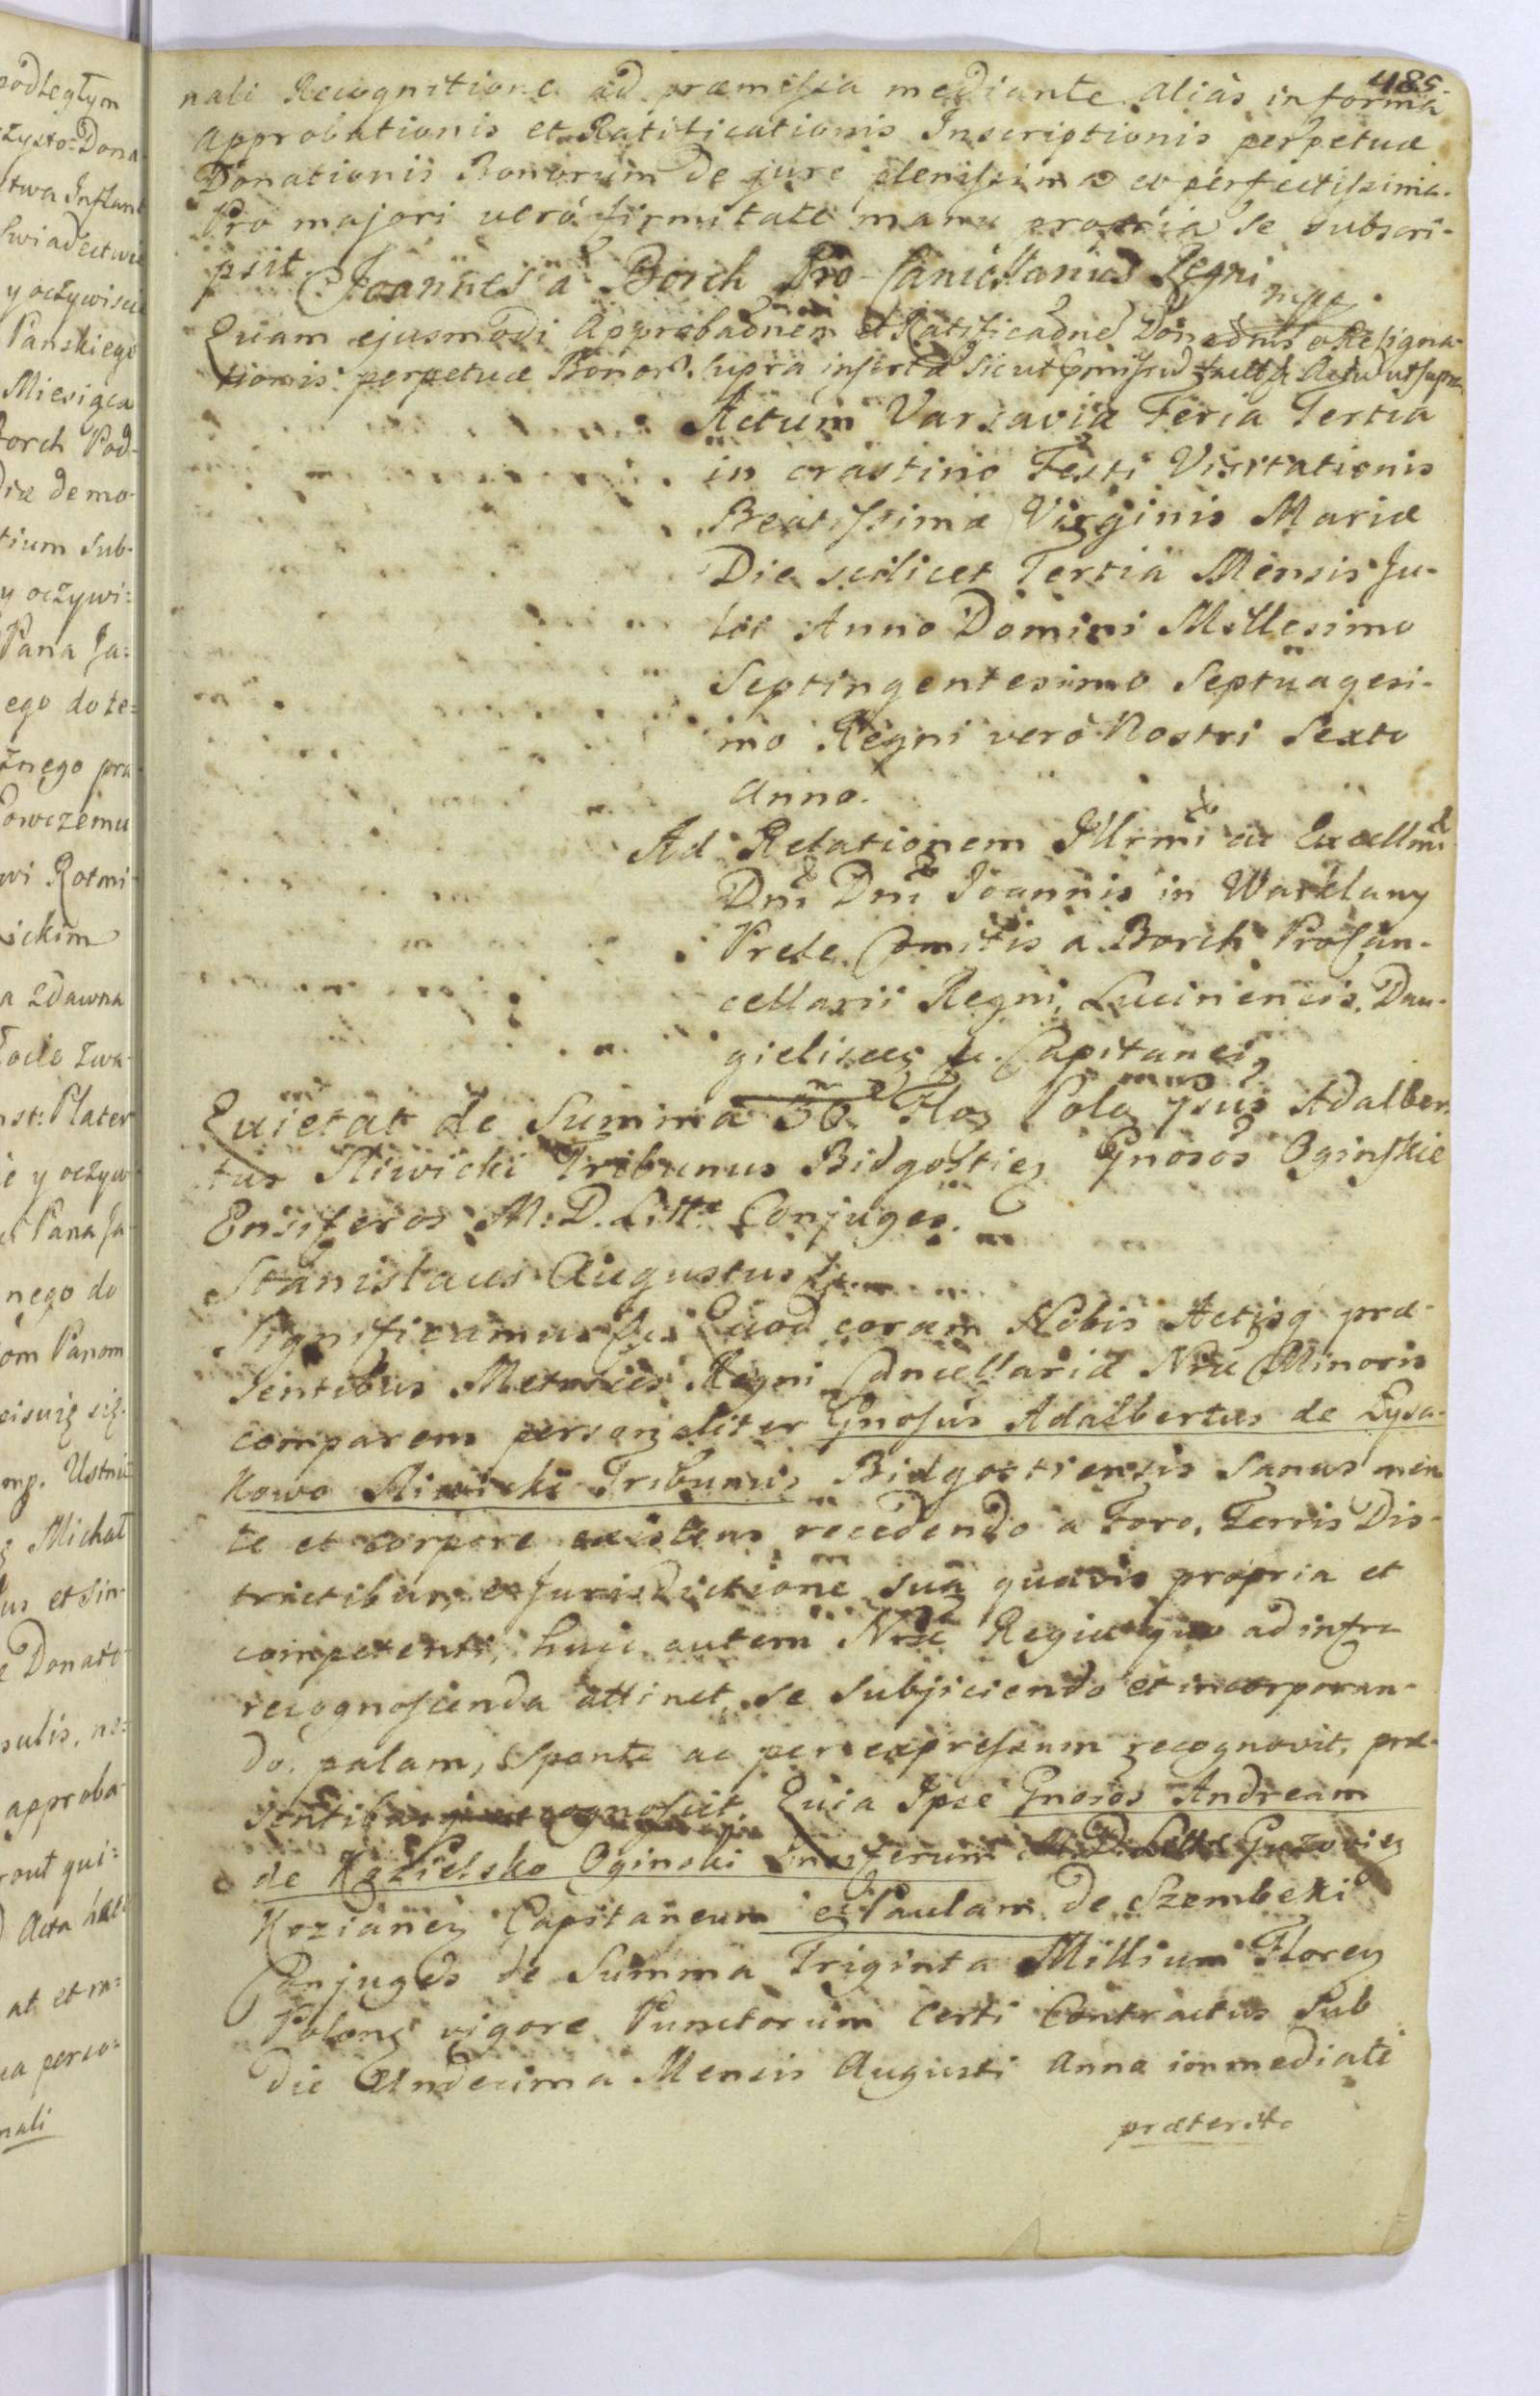 podległym
czysto: Dona
Świadectwie
y oczywiscie
Panskiego
Miesiąca
Borch Pod-
diæ de mo-
tium sub-
y oczywi:
Pana Ja:
ego do te=
żnego pra
owczemu
wi Rotmi-
ickim
a zdawna
zwa-
st: Plater
ie y oczyw
Pana Ja
nego do
om Panom
mp. Ustnie
Michał
us et sin-
e Donato-
sulis, ne:
approba-
rout qui:
Acta hæc
at et ra:
ua perso:
nali
485.
nali Recognitione ad præmissa mediante alias in forma
Approbationis et Ratificationis Inscriptionis perpetuæ
Donationis Bonorum de jure plenissima et perfectissima.
Pro majori verò firmitate manu propria se subscri-
psit. Joannes à Borch Pro-Cancellarius Regni mpp.
Quam ejusmodi Approbaonem et Ratificaone Donaonis et Resigna-
tionis perpetuæ Bonor. supra inserta sicut Actu ut supra
Actum Varsaviæ Feria Tertia
in crastino Festi Visitationis
Beatissimæ Virginis Mariæ
Die scilicet Tertia Mensis Ju-
lii Anno Domini Millesimo
Septingentesimo Septuagesi-
mo Regni verò Nostri Sexto
Anno.
Ad Relationem Illrmi ac Excellmi
Dni Dni Joannis in Warklany
Prele Comitis a Borch Procan-
cellarii Regni, Lucinensis, Dau-
gielisceg &c. Capitanei
Quietat de Summa 30 m Flor Polo Gnosus Adalber-
tus Sliwicki Tribunus Bidgostieg Gnosos Oginskie
Ensiferos M. D. Litt. Conjuges.
Stanislaus Augustus &c.
Significamus &c. Quod coram Nobis Actisq præ-
sentibus Metrices Regni Cancellariæ Nræ Minoris
comparens personaliter Gnosus Adalbertus de Lysa-
kowo Sliwicki Tribunus Bidgostiensis Sanus men
te et corpore existens, recedendo a Foro, Terris Dis-
trictibus, et Jurisdictione sua quavis propria et
competenti, huic autem Nræ Regiæ quo ad infra
recognoscenda attinet, se subjiciendo et incorporan-
do, palam, sponte ac per expressum recognovit, præ-
sentibusq recognoscit. Quia Ipse Gnosos Andream
de Kozielsko Oginski Ensiferum M. D. Littæ Guzovieg
Kozianeg Capitaneum et Paulam de Szembeki
Conjuges de Summa Triginta Millium Floreg
Poloneg vigore Punctorum certi Contractus Sub
Die Undecima Mensis Augusti Anno immediate
præterito